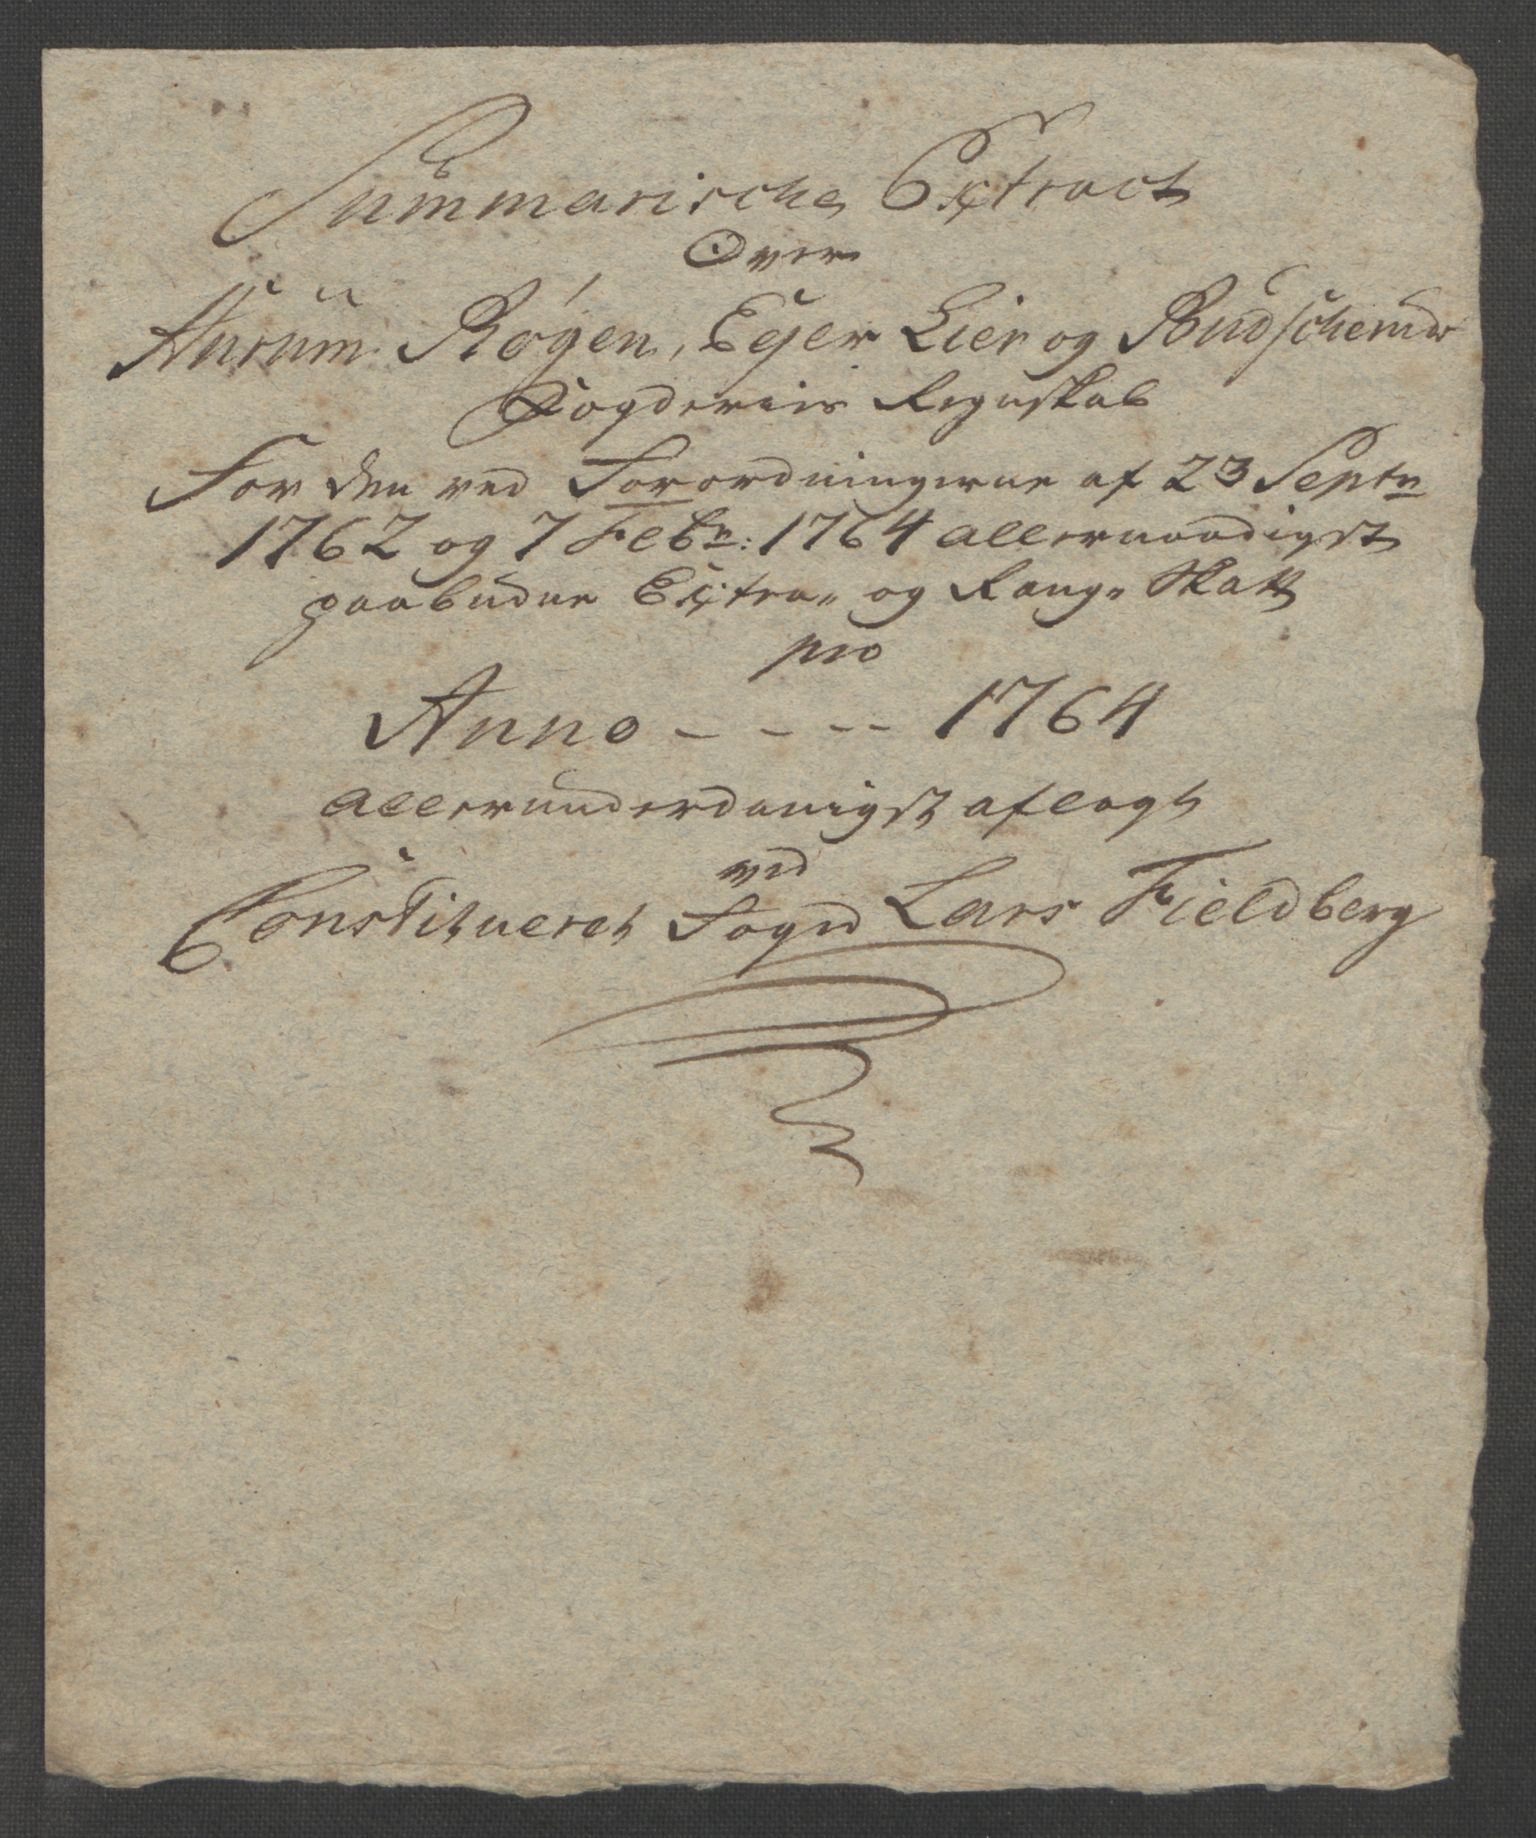 Summarische Extract
Over
Hurum. Røgen, Eger Lier og Budscheruds
Fogderies Regnskab
For den ved Forordningerne af 23 Septr
1762 og 7 Febr: 1764 allernaadigst
paabudne Extra- og Rang- Skatt
pro
Anno - - - - 1764
allerunderdanigst aflagt
ved
Constitueret Foged Lars Fieldberg